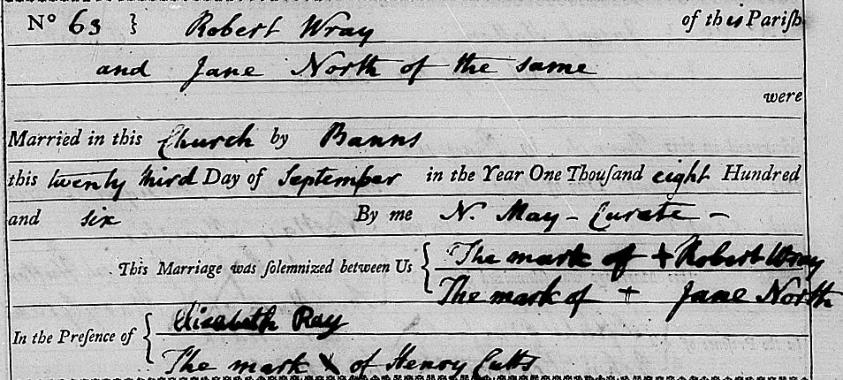 No 63 } Robert Wray of this Parish
and Jane North of the same
were
Married in this Church by Banns
this twenty third Day of September in the Year One Thousand eight Hundred
and six By me N. May - Curate -
This Marriage was solemnized between Us { The mark of + Robert Wray
The mark of + Jane North
In the Presence of { Elizabeth Ray
The mark X of Henry Cutts